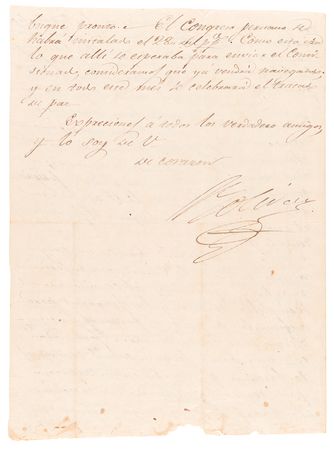 buque pronto. El Congreso peruano se
habrá instalado el 28 del
lo que allí se esperaba para enviar el Comi-
sionado, consideramos que ya vendrá navegando,
y en todo este mes se celebrará el tratado
de paz.
Expresiones á todos los verdaderos amigos
y lo soy de V.
de corazon
Bolivar